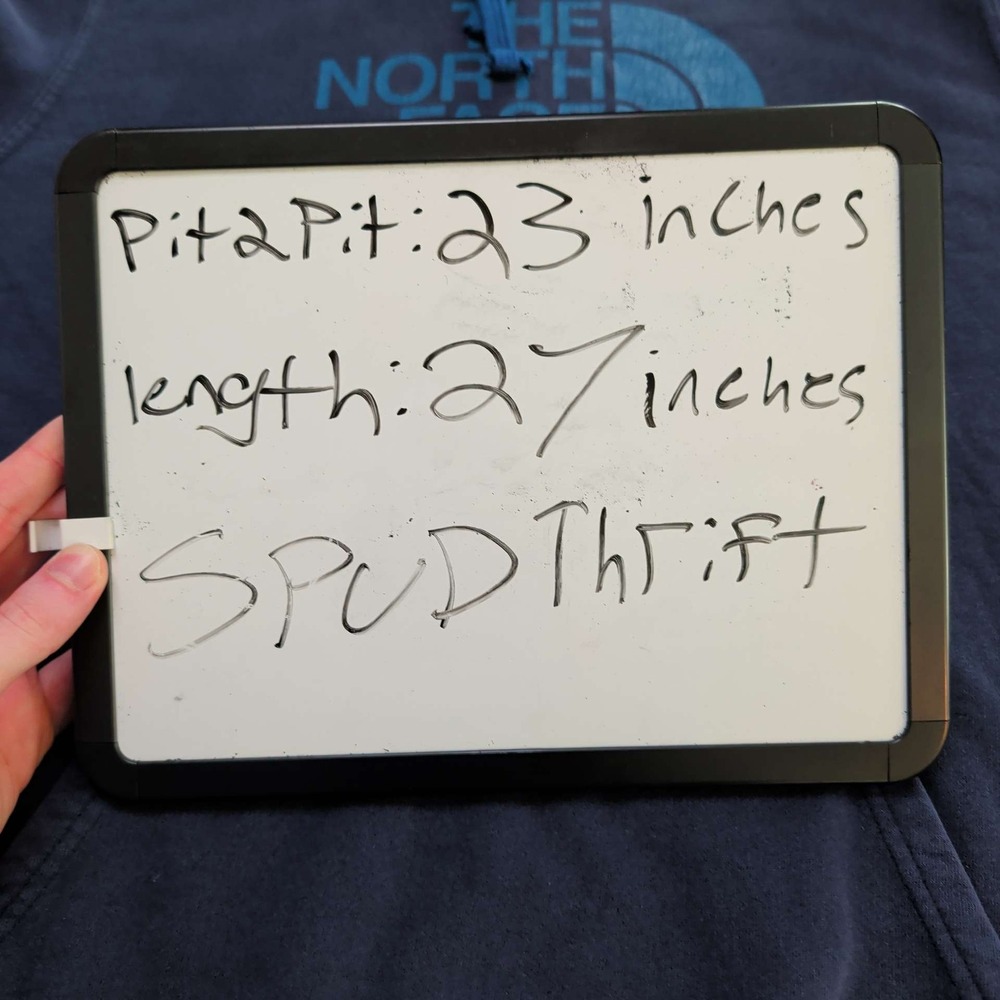 THE
NORTH
FACE
Pit2Pit: 23 inches
length: 27 inches
SPUD Thrift